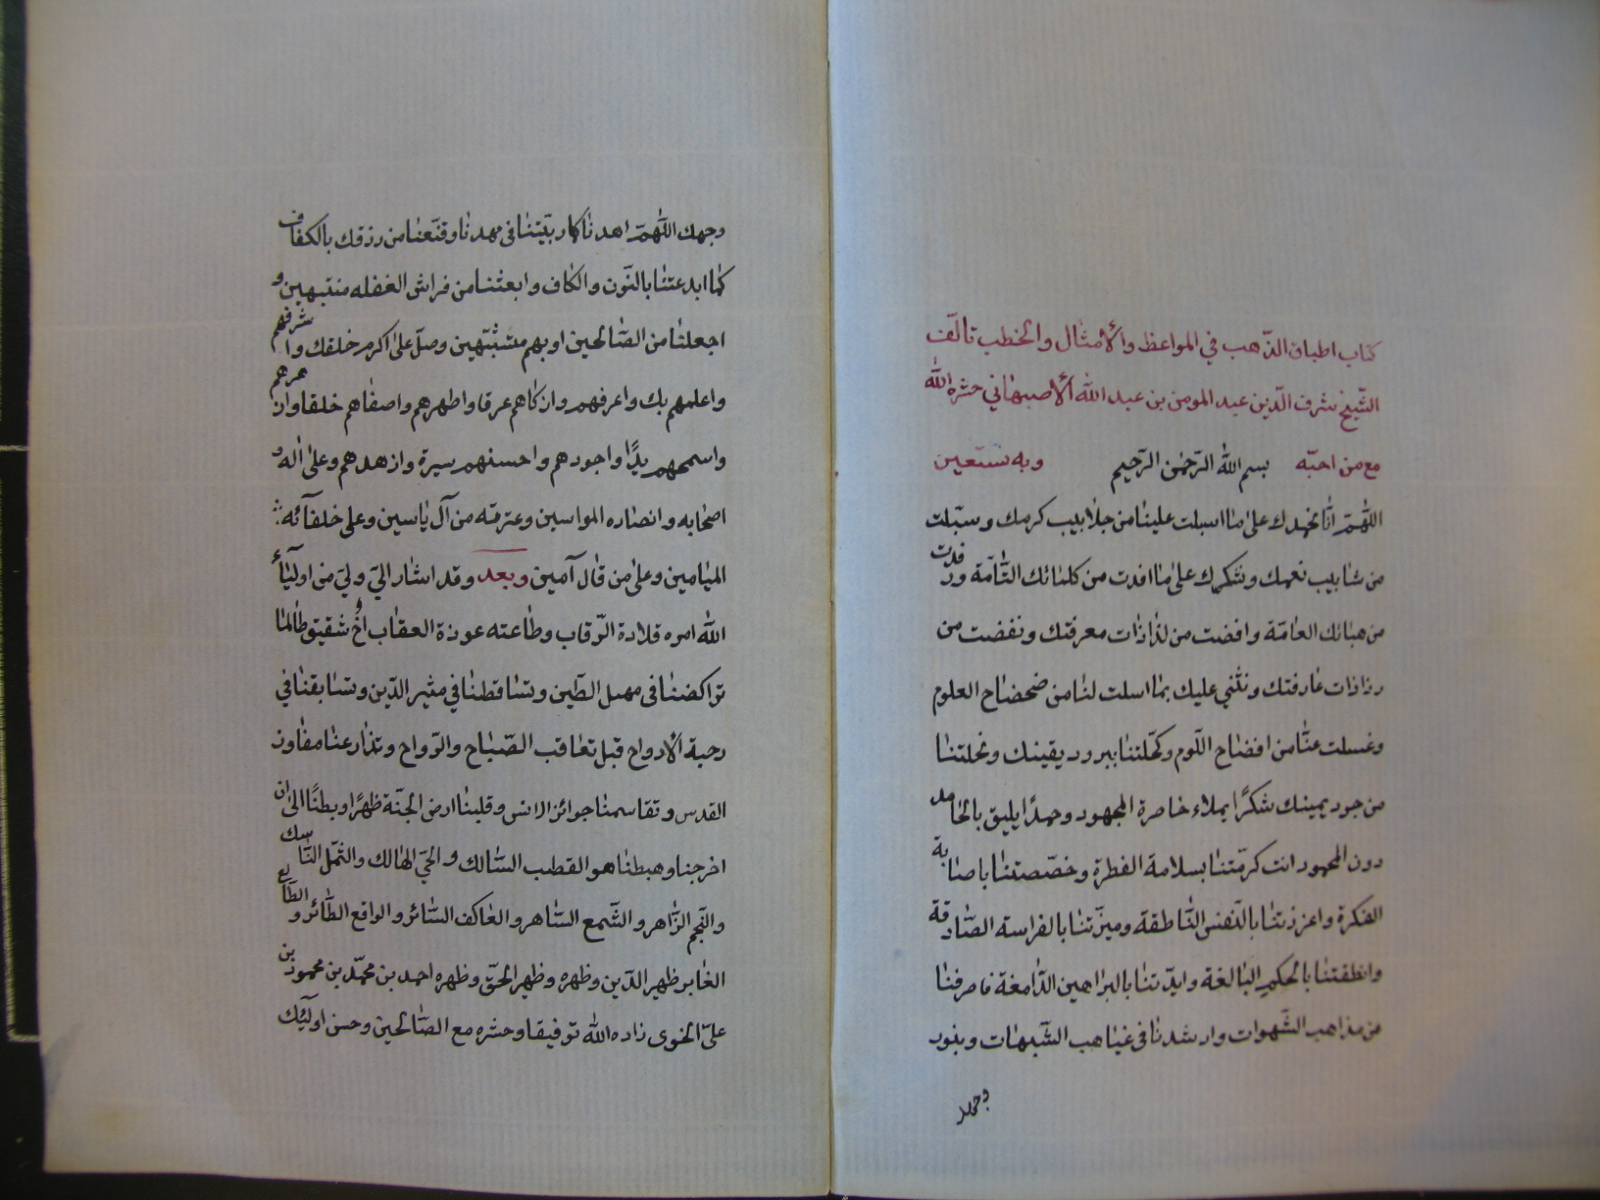 كتاب اطباق الذّهب في المواعظ والأمثال والخطب تالّف
الشّيخ شرف الدّين عبد المومن بن عبد الله الأصبهاني حشره الله
مع من احبّه بسم الله الرّحمٰن الرّحيم وبه نستعين
اللّهمّ انّا نحمدك على ما اسبلت علينا من جلابيب كرمك وسبّلت
من شابيب نعمك ونشكرك على ما افدت من كلماتك التّامّة ورفدت
من هباتك العامّة وافضت من لذاذات معرفتك ونفضت من
رذاذات عارفتك ونثني عليك بما اسلت لنا من ضحضاح العلوم
وغسلت عنّا من افضاح اللّوم وكحّلتنا ببرود يقينك ونحلتنا
من جود يمينك شكرًا يملاء خاصرة المجهود وحمدًا يليق بالحامد
دون المحمود انت كرمّتنا بسلامة الفطرة وخصّصتنا باصابة
الفكرة واعززتنا بالنّفس النّاطقة وميّزتنا بالفراسة الصّادقة
وانطقتنا بالحكم البالغة وايدّتنا بالبراهين الدّامغة فاصرفنا
من مذاهب الشّهوات وارشدنا في غياهب الشّبهات وبنور
وجهك
وجهك اللّهمّ اهدنا كما ربّيتنا في مهدنا وقنّعنا من رزقك بالكفاف
كما ابدعتنا بالنّون والكاف وابعثنا من فراش الغفله منتبهين و
اجعلنا من الصّالحين او بهم متشبّهين وصلّ على اكرم خلقك واشرفهم
واعلمهم بك واعرفهم وازكاهم عرقا واطهرهم واصفاهم خلقا و
واسمحهم يدًا واجودهم واحسنهم سيرة وازهدهم وعلى اله و
اصحابه وانصاره المواسين وعترته من آل ياسين وعلى خلفآئه
الميامين وعلى من قال آمين وبعد وقد اشار اليّ وليّ من اوليآء
الله امره قلادة الرّقاب وطاعته عوذة العقاب اخٌ شقيق طالما
تراكضنا في مهبل الطّين وتساقطنا في مثير الدّين وتسابقنا في
رحبة الارواح قبل تعاقب الصّباح والرّواح وتذارعنا مفاوز
القدس وتقاسمنا جوائز الانس وقلبنا ارض الجنّة ظهرًا وبطنًا الى ان
اخرجنا وهبطنا هو القطب السّالك والحيّ الهالك والثمّل النّاسك
والنّجم الزّاهر والشّمع السّاهر والعاكف السّائر والواقع الطّائر والطّالع
الغابر ظهير الدّين وظهره وظهير الحقّ وظهره احمد بن محمّد بن محمود بن
علىّ الخوى زاده الله توفيقا وحشره مع الصّالحين وحسن اولٓئك